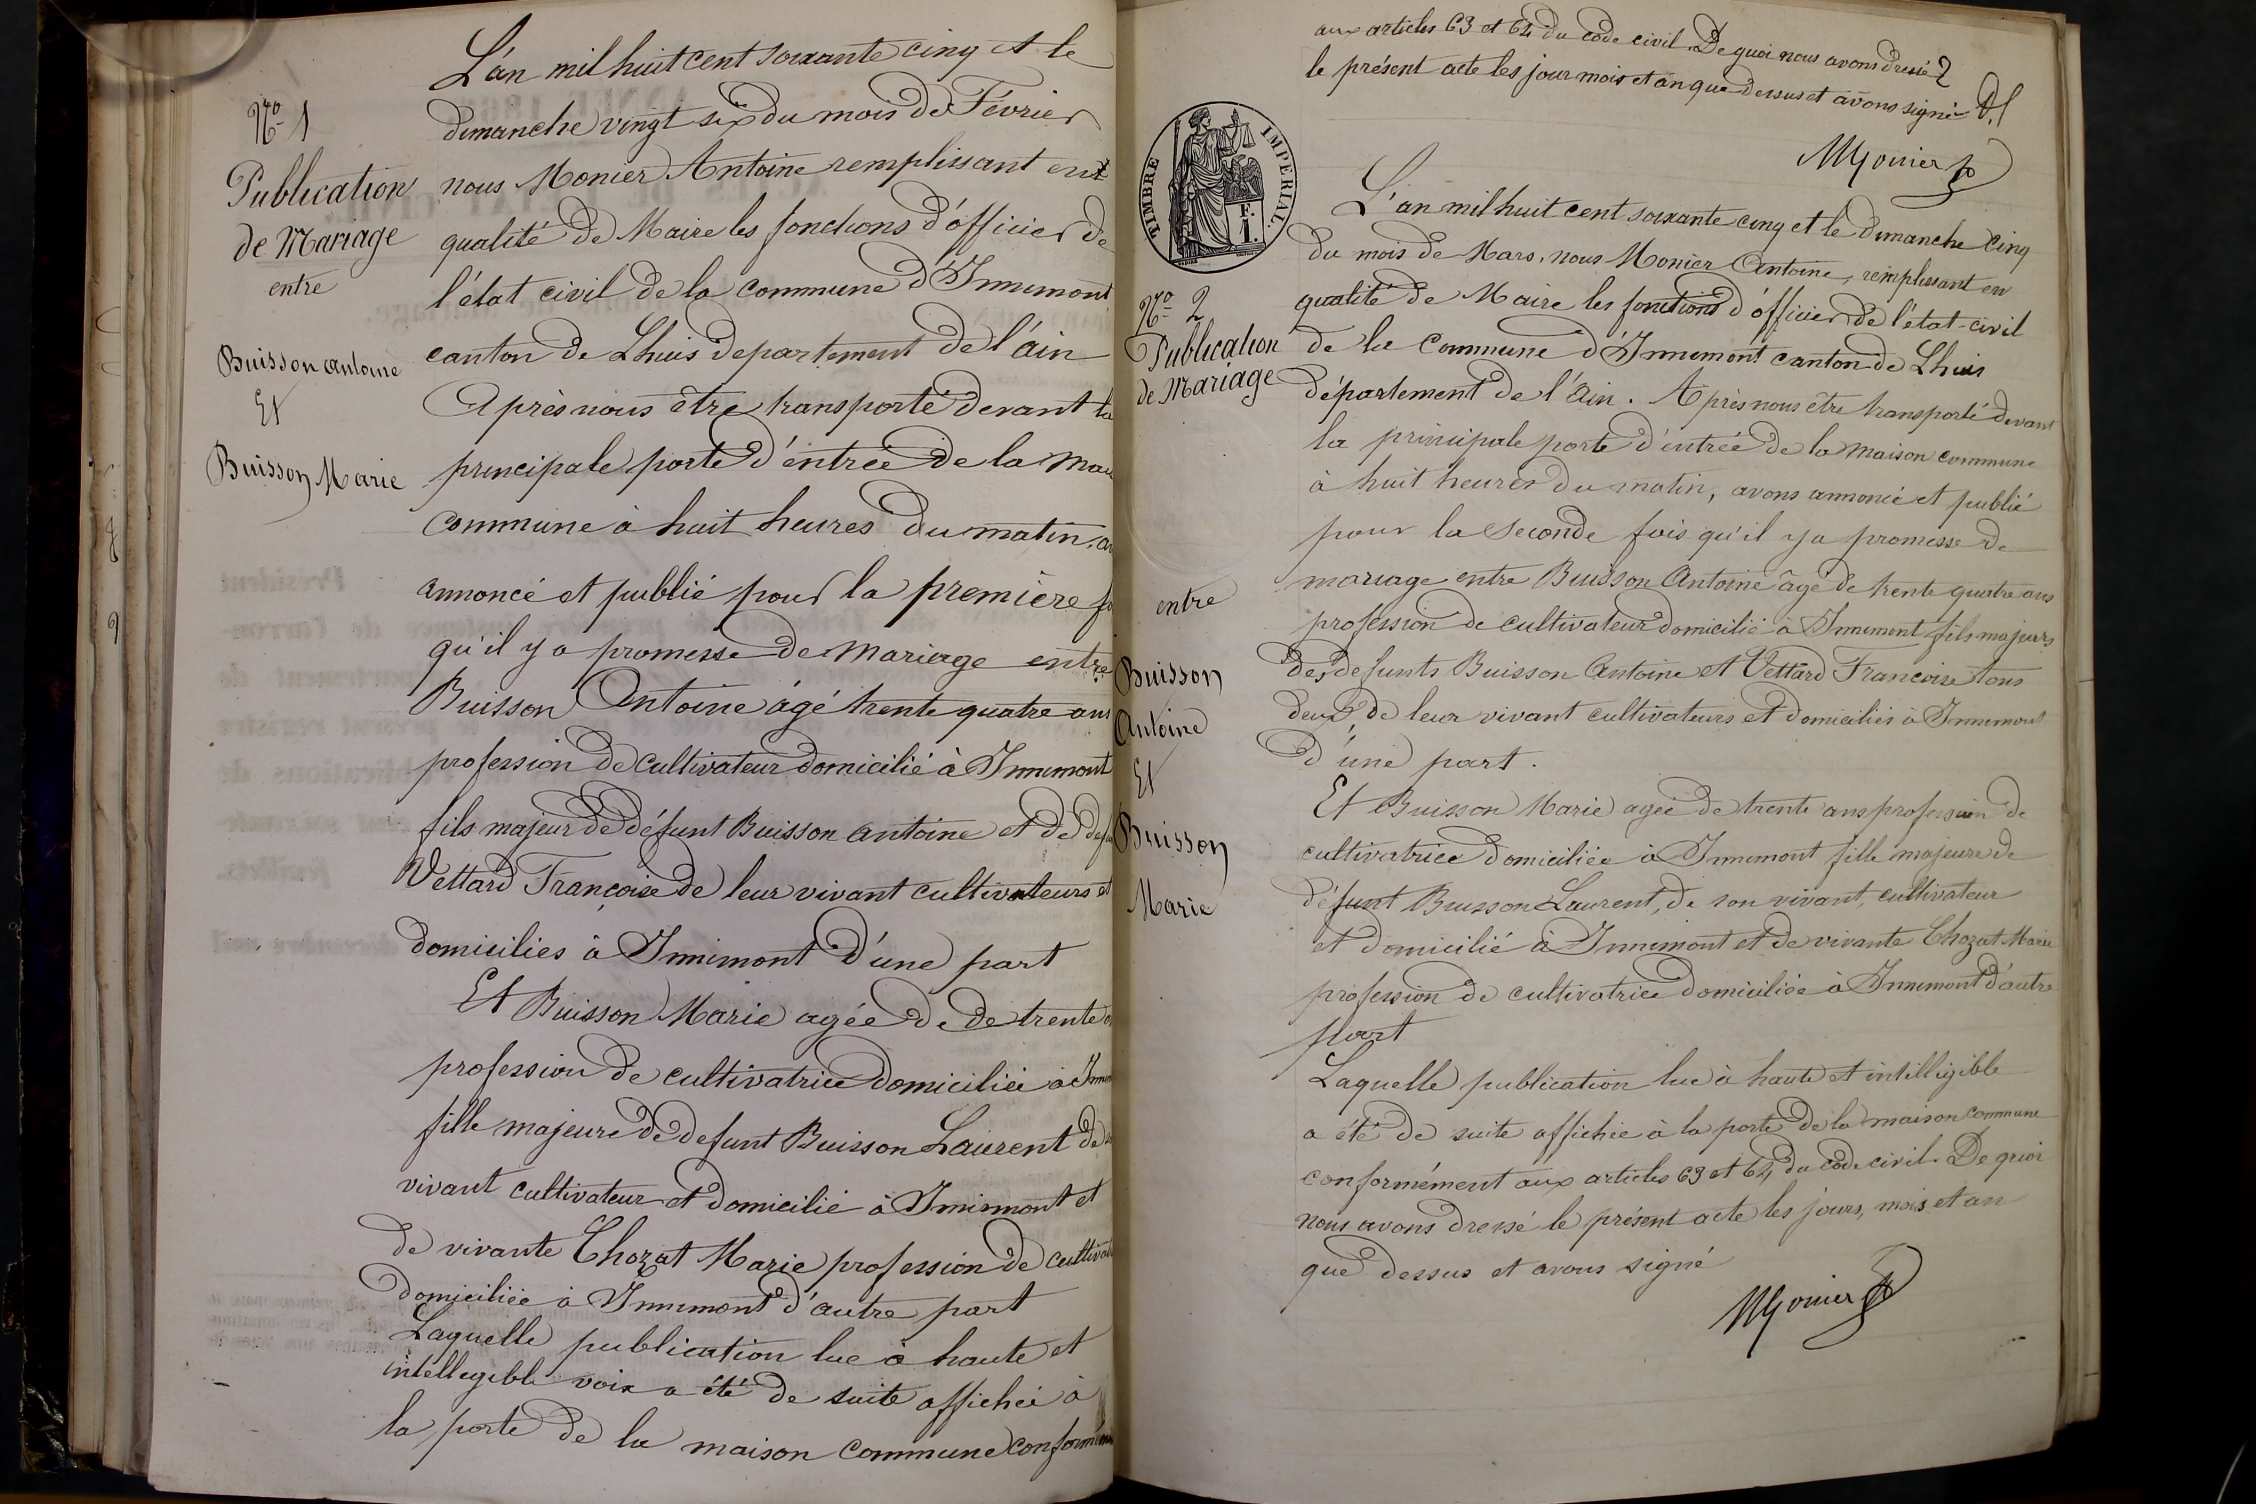 L'an mil huit cent soixante cinq et le
dimanche vingt six du mois de Février
nous Monier Antoine remplissant en
qualité de Maire les fonctions d'officier de
l'état civil de la commune d'Innimont
canton de Lhuis departement de l'ain
Après nous être transporté devant la
principale porte d'entrée de la
commune à huit heures du matin,
annoncé et publié pour la première
qu'il y a promesse de Mariage entre
Buisson Antoine âgé trente quatre ans
profession de cultivateur domicilié à Innimont
fils majeur de défunt Buisson Antoine et de
Vettard Françoise de leur vivant cultivateurs et
domiciliés à Innimont d'une part
Et Buisson Marie agée de de trente
profession de cultivatrice domiciliée à
fille majeure de defunt Buisson Laurent de
vivant cultivateur et domicilié à Innimont et
de vivante Chozat Marie profession de
domiciliée à Innimont d'autre part
Laquelle publication lue à haute et
intellegible voix a été de suite affichée à
la porte de la maison commune
No 1
Publication
de Mariage
entre
Buisson Antoine
Et
Buisson Marie
aux articles 63 et 64 du code civil. De quoi nous avons dressé
le présent acte les jour mois et an que dessus et avons signé
Monier
TIMBRE IMPERIAL.
F.
1.
L'an mil huit cent soixante cinq et le dimanche cinq
du mois de Mars, nous Monier Antoine, remplissant en
qualité de Maire les fonctions d'officier de l'état-civil
de la commune d'Innimont canton de Lhuis
département de l'Ain. Après nous être transporté devant
la principale porte d'entrée de la maison commune
à huit heures du matin, avons annoncé et publié
pour la seconde fois qu'il y a promesse de
mariage entre Buisson Antoine âgé de trente quatre ans
profession de cultivateur domicilié à Innimont fils majeur
des defunts Buisson Antoine et Vettard Francoise tous
deux, de leur vivant cultivateurs et domiciliés à Innimont
d'une part.
Et Buisson Marie agée de trente ans profession de
cultivatrice domiciliée à Innimont fille majeure de
défunt Buisson Laurent, de son vivant, cultivateur
et domicilié à Innimont et de vivante Chozat Marie
profession de cultivatrice domiciliée à Innimont d'autre
part
Laquelle publication lue à haute et intelligible
a été de suite affichée à la porte de la maison commune
conformément aux articles 63 et 64 du code civil. De quoi
nous avons dressé le présent acte les jours, mois et an
que dessus et avons signé
Monier
No 2
Publication
de Mariage
entre
Buisson
Antoine
Et
Buisson
Marie